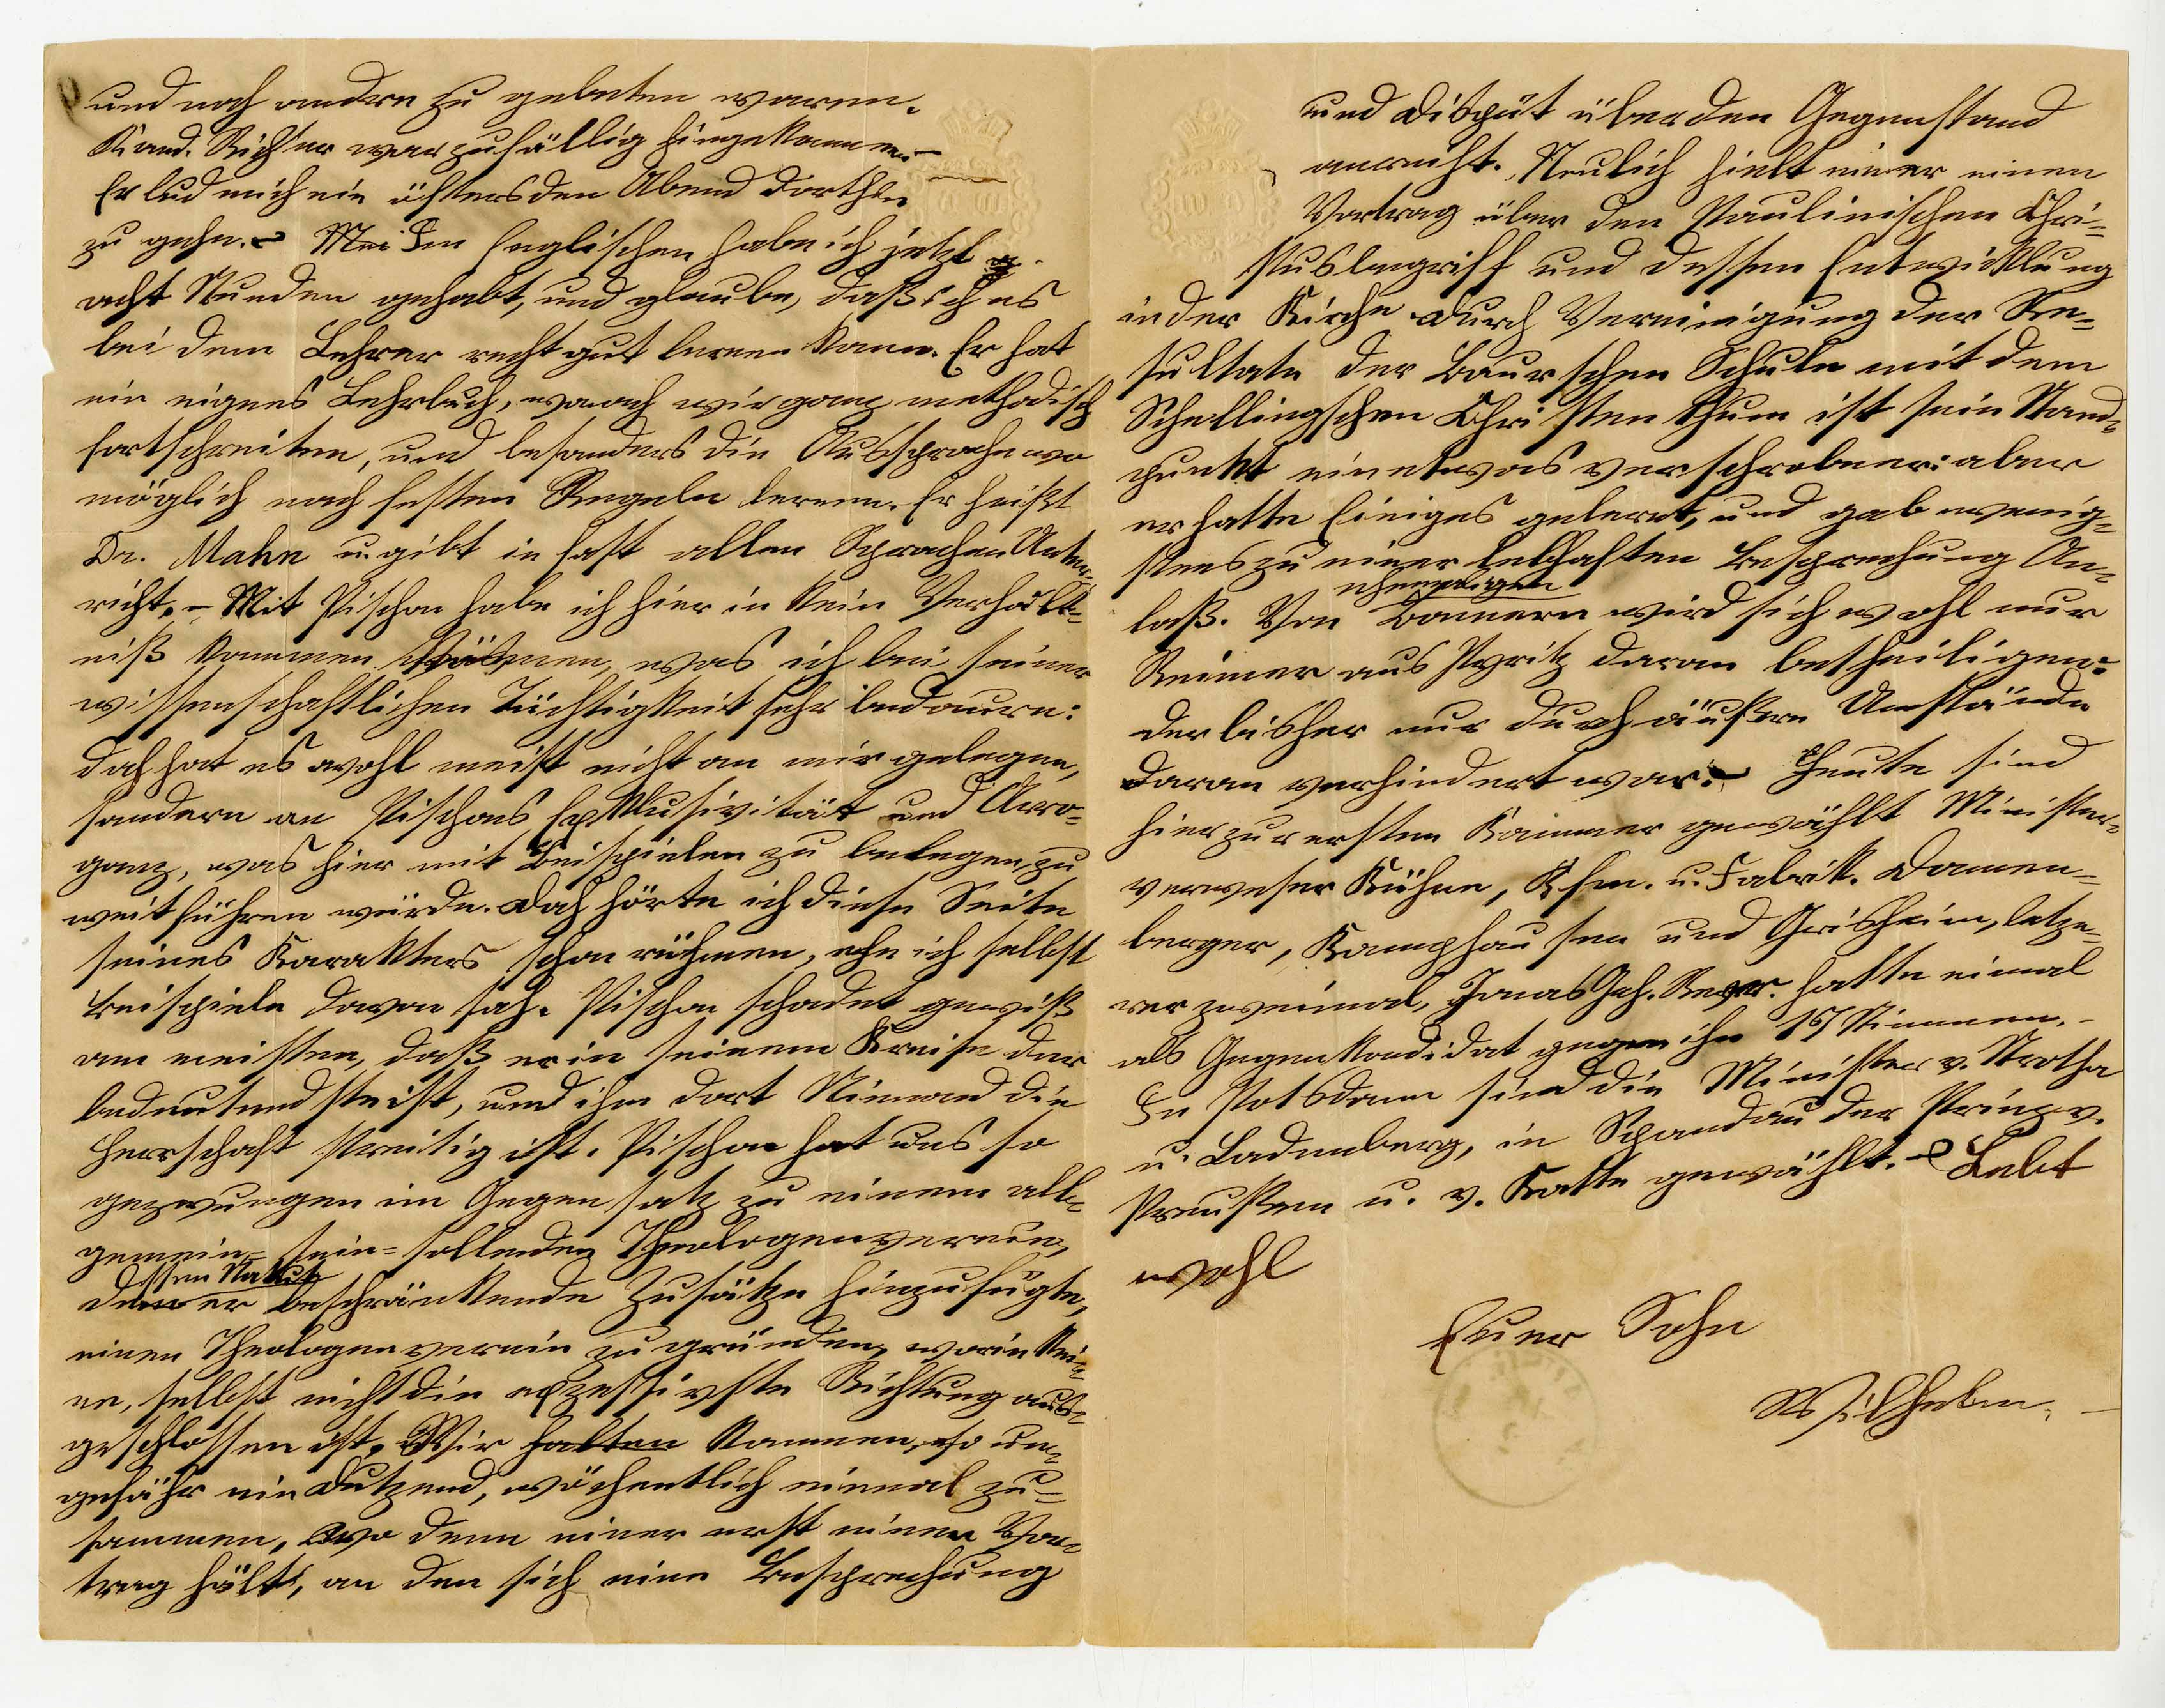 und noch andere zu gebeten waren.
Kand. Richter war zufällig hingekommen.
Er lud mich ein öfters den Abend dorthin
zu gehn. – Im Englischen habe ich jetzt
acht Stunden gehabt, und glaube, daß ich es
bei dem Lehrer recht gut lernen kann. Er hat
ein eignes Lehrbuch, wonach wir ganz methodisch
fortschreiten, und besonders die Aussprache wo
möglich nach festen Regeln lernen. Er heißt
Dr. Mahn u. gibt in fast allen Sprachen Unter-
richt. – Mit Pischon habe ich hier in kein Verhält-
niß kommen können, was ich bei seiner
wissenschaftlichen Tüchtigkeit sehr bedaure:
doch hat es wohl meist nicht an mir gelegen,
sondern an Pischons Exklusivität und Arro-
ganz, was hier mit Beispielen zu belegen zu
weit führen würde. Doch hörte ich diese Seite
seines Karakters schon rühmen, ehe ich selbst
Beispiele davon sah. Pischon schadet gewiß
am meisten, daß er in seinem Kreise der
bedeutendste ist, und ihm dort Niemand die
Herrschaft streitig ist. Pischon hat uns so
gezwungen im Gegensatz zu einem all-
gemein- sein-sollenden Theologenverein,
dessen Statut
er beschränkende Zusätze hinzufügte,
einen Theologenverein zu gründen, worin kei-
ne, selbst nicht die exzessivste Richtung aus-
geschlossen ist. Wir halten kommen, so un-
gefähr ein Dutzend, wöchentlich einmal zu-
sammen, wo denn einer erst einen Vor-
trag hält, an den sich eine Besprechung
und Disput über den Gegenstand
anreiht. Neulich hielt einer einen
Vortrag über den Paulinischen Chri-
stusbegriff und dessen Entwicklung
in der Kirche durch Vereinigung der Re-
sultate der Baurschen Schule mit dem
Schellingschen Christenthum ist sein Stand-
punkt ein etwas verschrobner: aber
er hatte Einiges gelernt, und gab wenig-
stens zu einer lebhaften Besprechung An-
ehemaligen
laß. Von wird sich wohl nur
Reimer aus Pyritz daran betheiligen:
der bisher nur durch äußere Umstände
daran verhindert war. – Heute sind
hier zur ersten Kammer gewählt Minister-
verweser Kühne, Kfm. u. Fabrik. Dannen-
berger, Kamphausen und Grisheim, letze-
rer zweimal, Jonas Geh. Regr. hatte einmal
als Gegenkandidat gegen ihn Stimmen. –
In Potsdam sind die Minister v. Strotha
u. Ladenberg, in Spandau der Prinz v.
Preußen u. v. Katte gewählt. – Lebt
wohl
Euer Sohn
Wilhelm. –